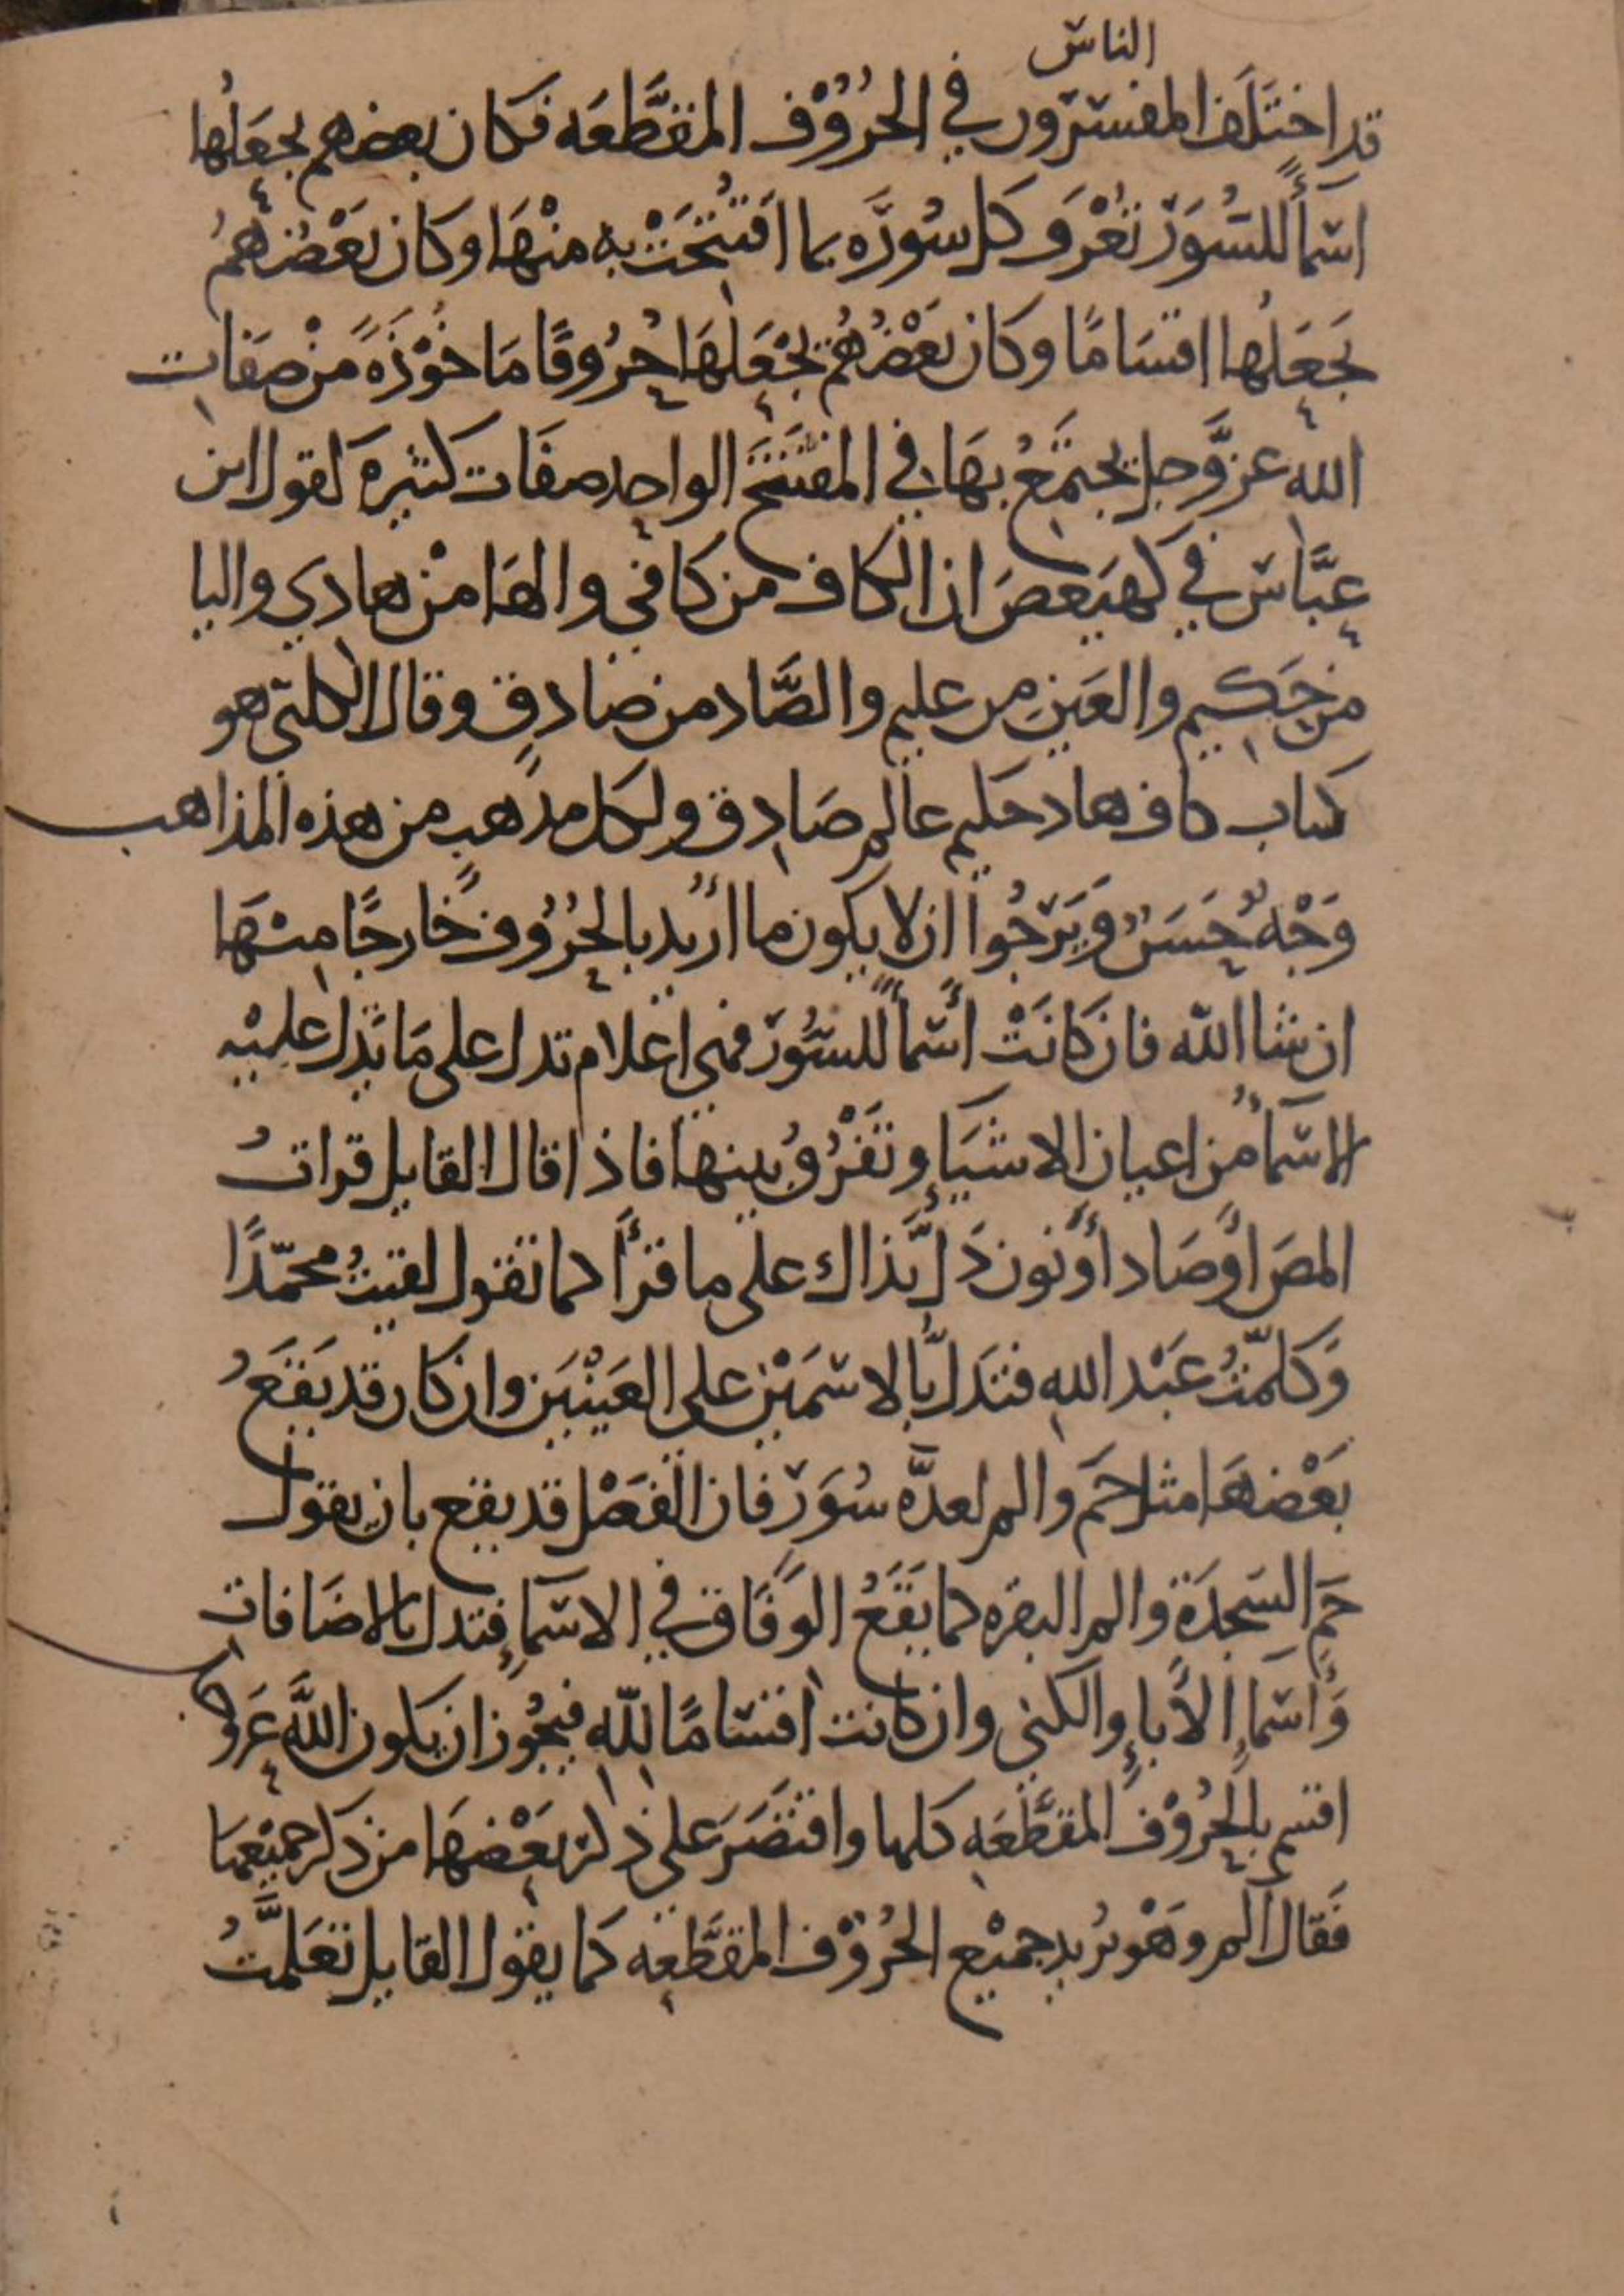 الناس
قد اختَلَف المفسّرون في الحُرُوْف المقطَّعَه فكان بعضهم يجعَلُها
اسمآءً للسُّوَر تُعْرَف كل سُورَه بما افتُتِحَتْ به منْهَا وكان بَعْضُهُمْ
يَجعَلُها اقسَامًا وكان بَعْضُهُمْ يَجْعَلهَا حُرُوفًا مَاخُوْذَةً مِنْ صِفَاتِ
اللهِ عزَّ وَجل يَجتَمِعُ بهَا في المفْتَتَح الواحِد صفَات كثيرة كقول ابن
عبَّاس في كهيَعصَ ان الكاف من كافي والهَا مِنْ هادي واليا
من حَكيم والعَين من عليم والصَّاد من صَادِق وقال الكلبي هو
كتاب كاف هاد حكيم عالم صَادِق ولكل مذهبٍ من هذه المذاهب
وَجْهٌ حَسَنٌ وَيَرْجُوا ان لا يكون ما اُريد بالحُرُوف خارجًا منْهَا
ان شا الله فان كانَتْ أسْمآءً للسُّوَر فهي اعْلام تدل على مَا تَدل عليْه
الاسْمآءُ من اعيان الاشيَاءِ وتَفْرُقُ بينها فاذا قال القايل قراتُ
المصَ أوْ صَاد أوْ نون دَلَّ بذاك على ما قَرأَ كما تقول لقيتُ محمّدًا
وَكلّمْتُ عَبْد الله فتدَلُّ بالاسْمَيْن على العَيْنَيَن وان كان قد يَقَعُ
بَعْضهَا مثل حمَ والم لعدَّه سُوَر فان الفَصْل قد يقع بان يقول
حَم السَجدَة والم البقره كما يَقَعُ الوِفَاق في الاسْمآءِ فتدل بالاضَافاتِ
وَأسْمآءِ الأبآءِ والكني وان كانت اقسَامًا للهِ فيَجُوز ان يكون اللهَ عَز وجل
اقسم بالحُرُوْف المقطَّعَه كلها واقتَصَرَ على ذكر بَعْضهَا من ذكر جميْعها
فَقال الم وهْو يُريد جميْع الحُرُوْف المقطَّعه كما يقول القايل تعَلَّمْتُ